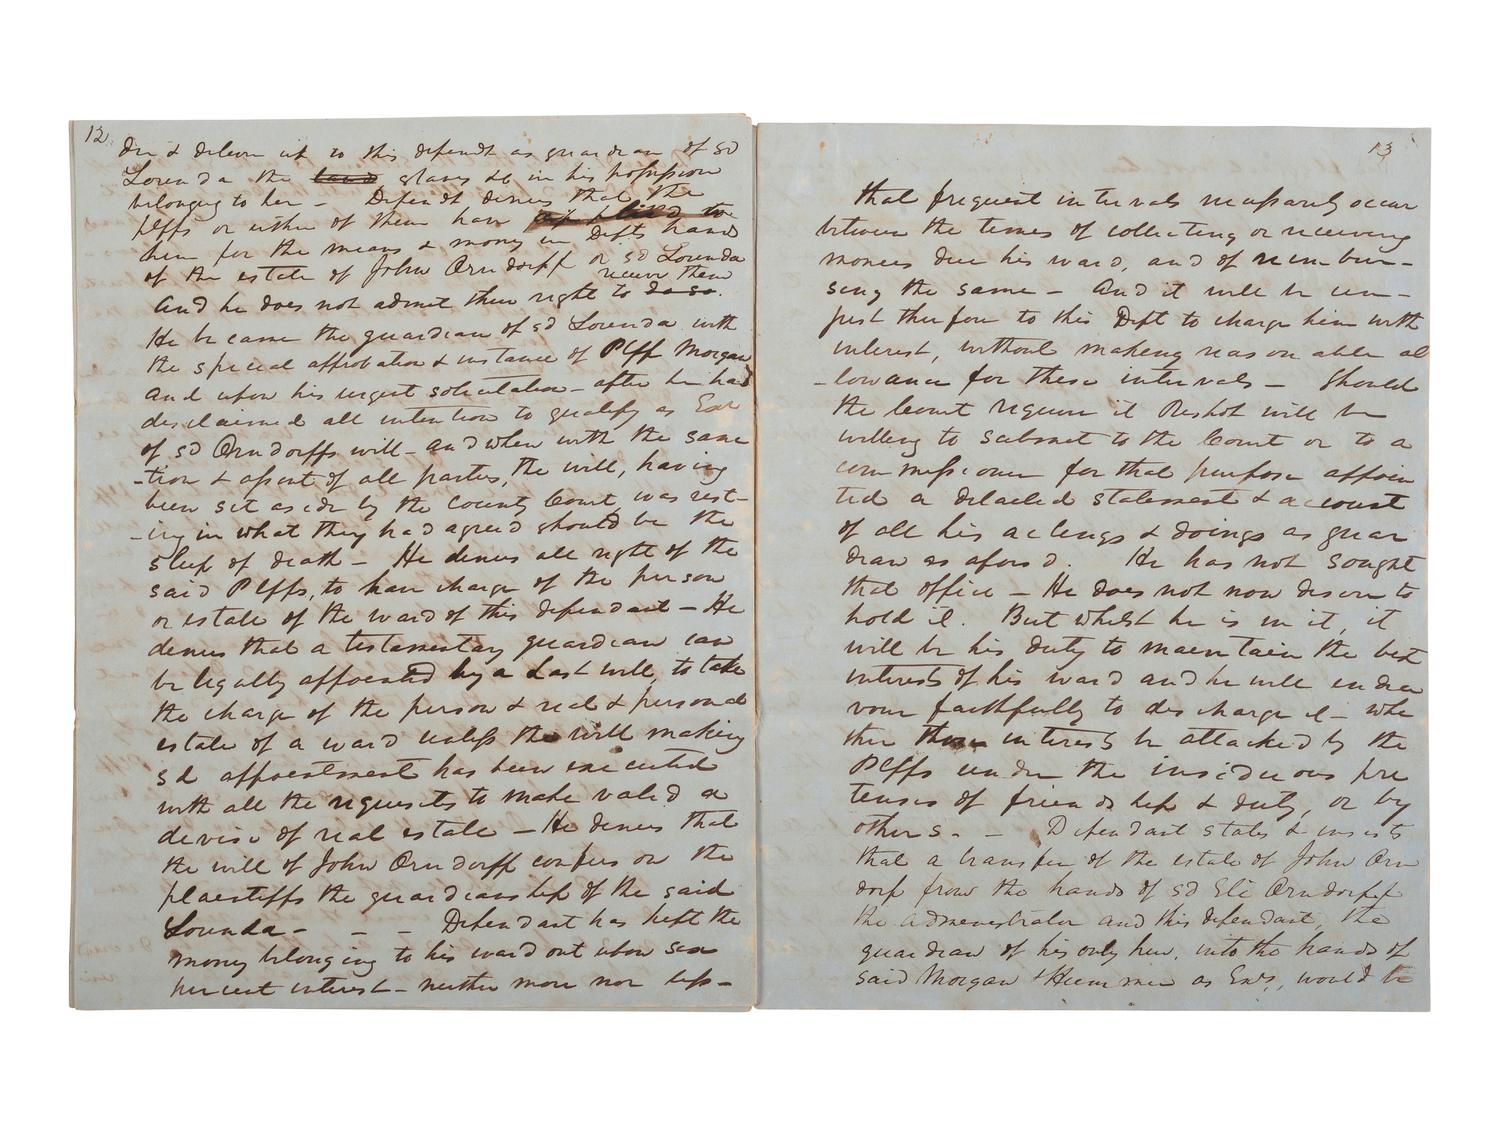 12.
der & deliver up to this defendt as guardian of sd
Lorenda the slaves &c in his possession
belonging to her - Defendt denies that the
plffs or either of them have applied to
him for the means & money in Defts hands
of the estate of John Orndorff or sd Lorenda
And he does not admit their right to receive them do so.
He became the guardian of sd Lorenda with
the special approbation & instance of Plff Morgan
and upon his urgent solicitation - after he had
disclaimed all intention to qualify as Exr
of sd Orndorffs will - and when with the sanc
-tion & assent of all parties, the will, having
been set aside by the County Court, was rest-
-ing in what they had agreed should be the
sleep of death - He denies all right of the
said Plffs, to have charge of the person
or estate of the ward of this defendant - He
denies that a testamentary guardian can
be legally appointed by a Last will, to take
the charge of the person & real & personal
estate of a ward unless the will making
sd appointment has been executed
with all the requisits to make valid a
devise of real estate - He denies that
the will of John Orndorff confers on the
plaintiffs the guardianship of the said
Lorenda - - - Defendant has kept the
money belonging to his ward out upon six
per cent interest - neither more nor less -
13
that frequent intervals necessarily occur
between the times of collecting or receiving
monies due his ward, and of reimbur-
sing the same - And it will be un-
just therefore to this Deft to charge him with
interest, without making reasonable al
-lowance for these intervals - Should
the Court require it Respdt will be
willing to submit to the Court or to a
commissioner for that purpose appoin
ted a detailed statement & account
of all his actings & doings as guar
dian as aforsd. He has not sought
that office - He does not now desire to
hold it. But whilst he is in it, it
will be his duty to maintain the best
interests of his ward and he will endea
vour faithfully to discharge it - whe
ther those interests be attacked by the
Plffs under the insidious pre
tenses of friendship & duty, or by
others. - Defendant states & insists
that a transfer of the estate of John Orn
dorf from the hands of sd Eli Orndorff
the administrator and this defendant, the
guardian of his only heir, into the hands of
said Morgan & Hummer as Exrs, would be